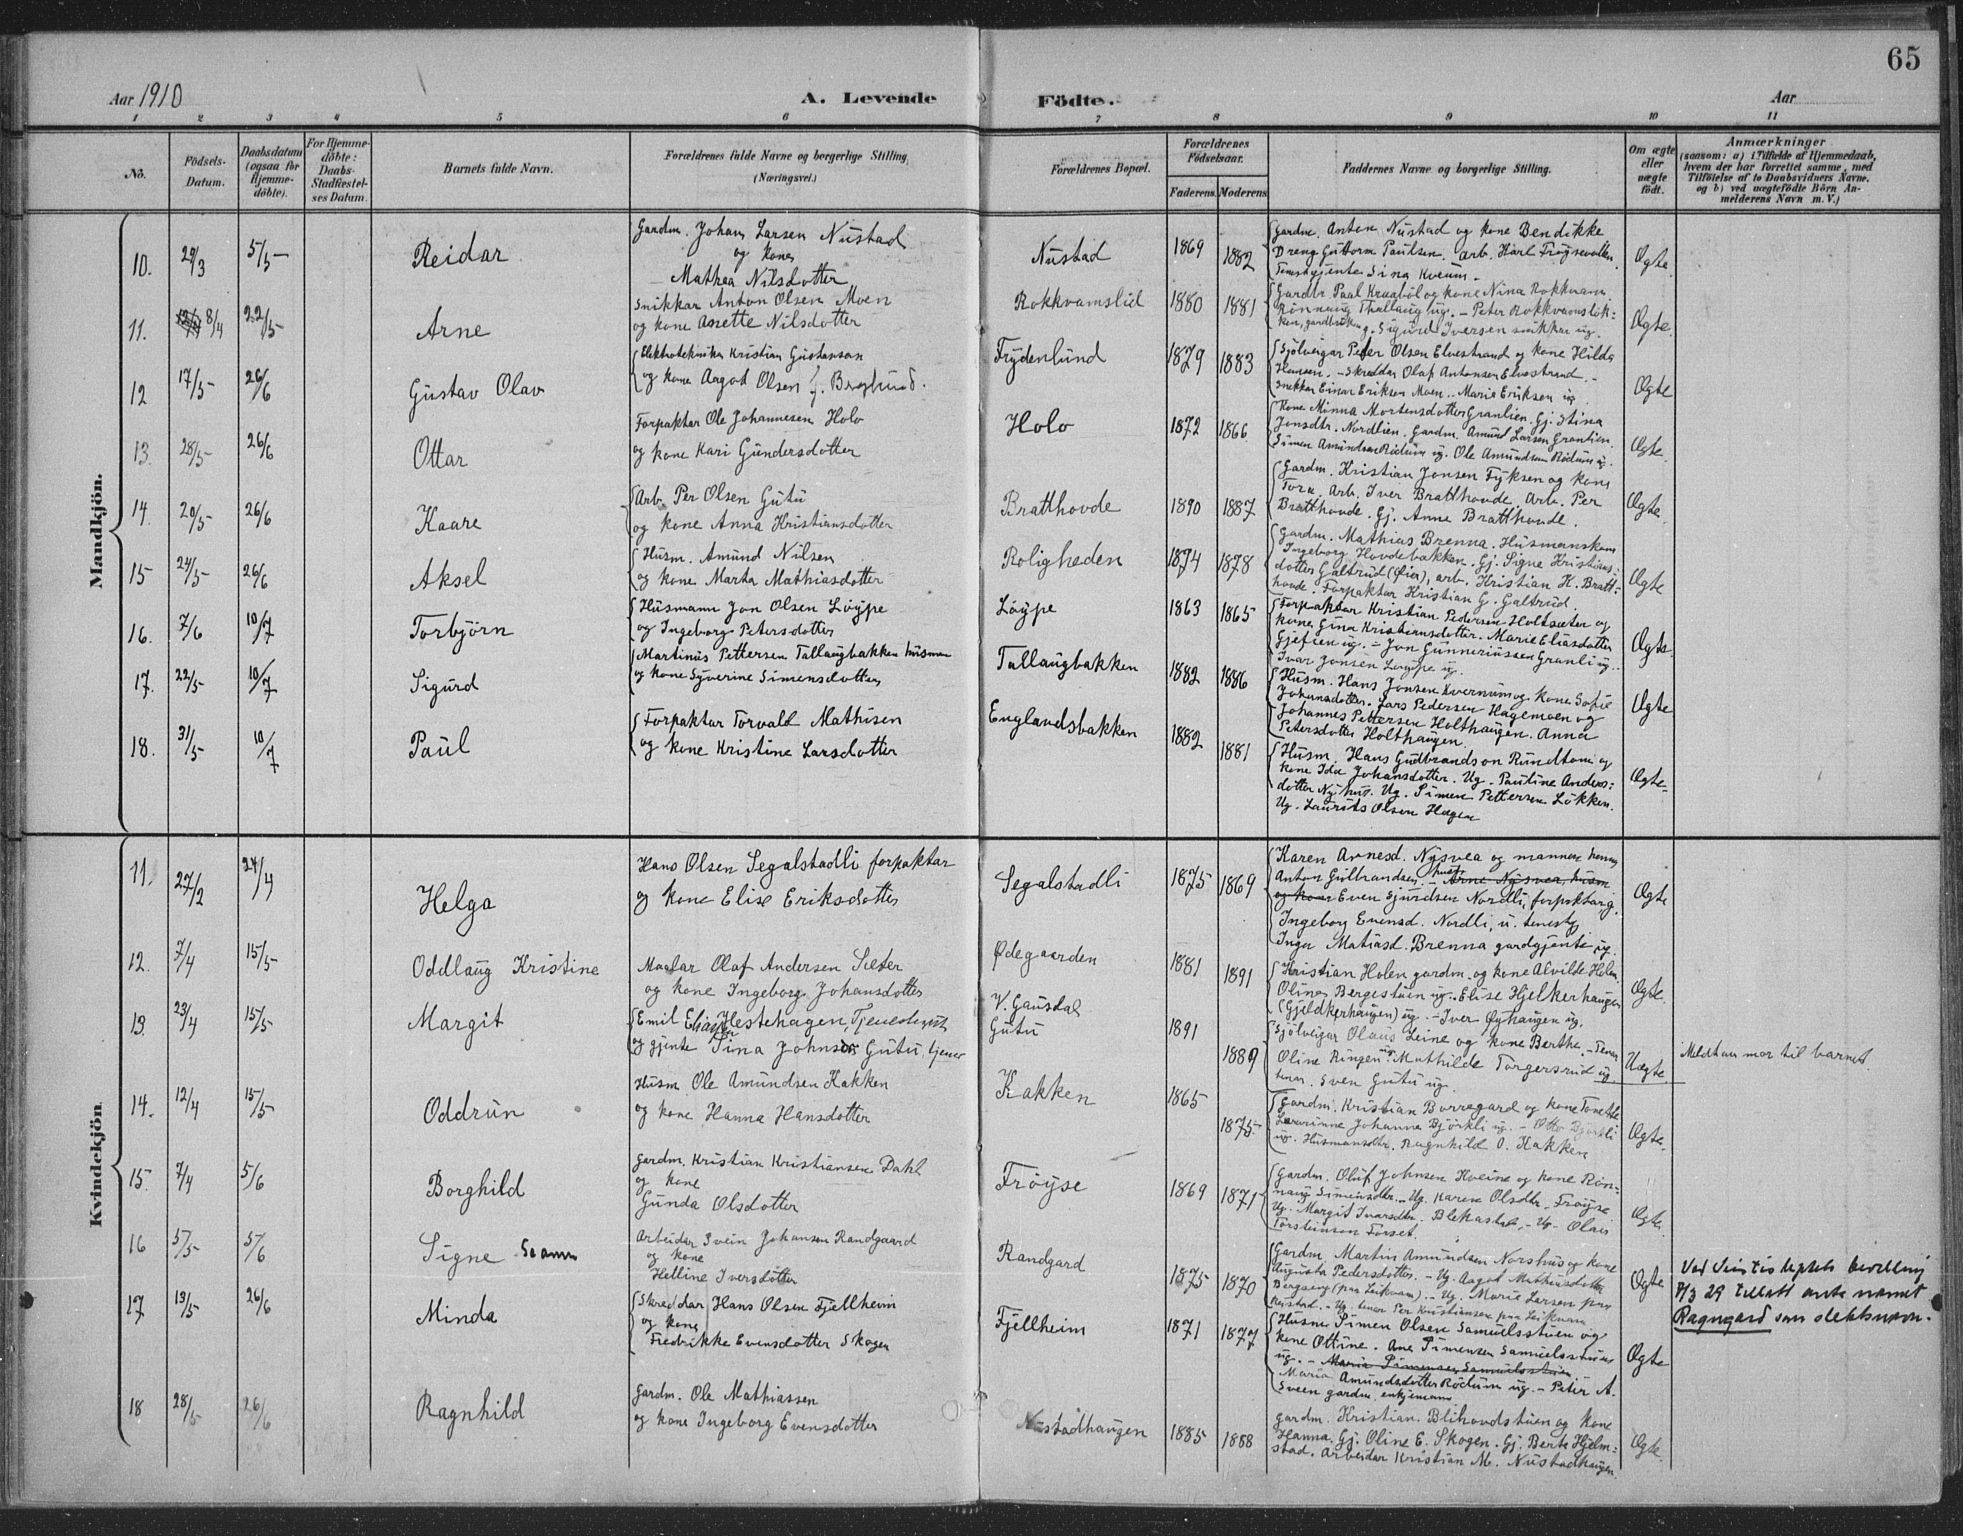 65
Aar 1910
A. Levende Födte.
Aar
1 2 3 4 5 6 7 8 9 10 11
No.
Födsels-Datum.
Daabsdatum (ogsaa for Hjemme-döbte).
For Hjemme-döbte: Daabs-Stadfæstel-ses Datum.
Barnets fulde Navn.
Forældrenes fulde Navne og borgerlige Stilling (Næringsvei.)
Forældrenes Bopæl.
Forældrenes Födselsaar.
Faderens. Moderens.
Faddernes Navne og borgerlige Stilling.
Om ægte eller uægte födt.
Anmærkninger
(saasom: a) i Tilfælde af Hjemmedaab, hvem der har forrettet samme, med Tilföielse af to Daabsvidners Navne, og b) ved uægtefödte Börn An-melderens Navn m. V.)
Mandkjön.
10. 29/3 5/5 Reidar Gardm. Johan Larsen Nustad og kone Mathea Nilsdotter Nustad 1869 1882
Gardm. Anton Nustad og kone Bendikke
Dreng Guttorm Paulsen. arb. Karl
Sina Kveum
Ægte.
11. 8/4 22/5 Arne Snikkar Anton Olsen Moen og kone Anette Nilsdotter Rokkvamslid 1880 1881
Gardbr. Paal Kraaböl og kone Nina Rokkvam
Rönnaug Thallaug ug. - Peter Rokkvamslök-
ken, gardbruker. Sigurd Iversen snikkar ug.
Ægte.
12 17/5 26/6 Gustav Olav Elektrotekniker Kristian Gustavson og kone Aagot Olsen f. Berglund. Frydenlund 1879 1883
Sjölveigar Peder Olsen Elvestrand og kone Hilda
Hansen. - Skreddar Olaf Antonsen Elvestrand. -
Snekker Einar Eriksen Moen. - Marie Eriksen ug.
Ægte
13. 28/5 26/6 Ottar Forpaktar Ole Johannesen Holo og kone Kari Gundersdotter Holo 1872 1866
Kone Minna Mortensdotter Granlien. Gj. Stina
Jonsdtr. Nordlien. Gardm. Amund Larsen Granlien.
Simen Amundsen Rödum ug. Ole Amundsen Rödum ug.
Ægte.
14. 20/5 26/6 Kaare Arb. Per Olsen Gutu og kone Anna Kristiansdotter Bratthovde 1890 1887
Gardm. Kristian Jonsen Fyksen og kone
Tora, Arb. Iver Bratthovde, Arb. Per
Bratthovde. Gj. Anne Bratthovde.
Ægte.
15 24/5 26/6 Aksel Husm. Amund Nilsen og kone Marta Mathiasdotter Roligheden 1874 1878
Gardm. Mathias Brenna. Husmanskone
Ingeborg Hovdebakken. Gj. Signe Kristians-
dotter Galtrud (Öier), arb. Kristian K. Bratt-
hovde. Forpaktar Kristian G. Galtrud.
Ægte
16. 7/6 10/7 Torbjörn Husmann Jon Olsen Löype og Ingeborg Petersdotter Löype 1863 1865
Forpaktar Kristian Pedersen Holtsæter og
kone Gina Kristiansdotter. Marie Eliasdotter
Gjefsen ug. - Jon Gunneriussen Granli ug.
Ivar Jonsen Löype ug.
Ægte.
17. 22/5 10/7 Sigurd Martinus Pettersen Tallaugbakken husman og kone Syverine Simensdotter Tallaugbakken 1882 1886
Husm. Hans Jonsen Kvernum og kone Sofie
Johansdotter. Lars Pedersen Hagemoen og
Johannes Pettersen Holthaugen. Anna
Petersdotter Holthaugen.
Ægte
18. 31/5 10/7 Paul Forpaktar Torvald Mathisen og kone Kristine Larsdotter Englandsbakken 1882 1881
Husm. Hans Gudbrandson Rundtom og
kone Ida Johansdotter. Ug. Pauline Anders-
dotter Nyhus. Ug. Simen Pettersen Lökken.
Ug. Laurits Olsen Hagen
Ægte.
Kvindekjön
11. 27/2 24/4 Helga Hans Olsen Segalstadli forpaktar og kone Elise Eriksdotter Segalstadli 1875 1869
Karen Arnesd. Nysvea og mannen hennes
Anton Gulbrandsen husm. - Arne Nysvea, husm
og kone Even Sjurdsen Nordli, forpaktar g.
Ingeborg Evensd. Nordli, u. tenestg
Inga Matiasd. Brenna gardgjente ug.
Ægte
12. 7/4 15/5 Oddlaug Kristine Maalar Olaf Andersen Sæter og kone Ingeborg Johansdotter Ødegaarden 1881 1891
Kristian Holen gardm. og kone Alvilde Holen
Oline Bergestuen ug. Elise Hjelkerhaugen
(Gjeldkerhaugen) ug. - Iver Øyhaugen ug.
Ægte.
13 23/4 15/5 Margit Emil Eliassen Hestehagen Tjenestegut og gjente Sina Johnsdr. Gutu, tjener V. Gausdal Gutu 1891 1889
Sjölveigar Olaus Leine og kone Berthe. - Tener
Oline Ringen ug. Mathilde Torgersrud ug
tenar. Sven Gutu ug.
Uægte. Meldt av mor til barnet
14. 12/4 15/5 Oddrun Husm. Ole Amundsen Kakken og kone Hanna Hansdotter Kakken 1865 1875.
Gardm. Kristian Borregard og kone Tonette
Lærarinne Johanna Björkli ug. - Otto Björkli
ug. Husmansdtr. Ragnhild O. Kakken
Ægte.
15. 7/4 5/6 Borghild Gardm. Kristian Kristiansen Dahl og kone Gunda Olsdotter Fröyse 1869 1871
Gardm. Oluf Johnsen Kveine og kone Rön-
naug Simensdtr. - Ug. Karen Olsdtr. Fröyse
Ug. Margit Ivarsdtr. Blekastad. - Ug. Olais
Torsteinsen Forset.
Ægte.
16 5/5 5/6 Signe Arbeidar Svein Johansen Randgaard og kone Helline Iversdotter Randgard 1875 1870
Gardm. Martin Amundsen Norshus og kone
Augusta Pedersdotter. - Ug. Aagot Mathiusdotter
Bergseng (paa Leikvam). - Ug. Marie Larsen paa
Neistad. - Ug. tener Per Kristiansen paa Leikvam
Ægte
Ved Justisdeptets bevilling 7/3 29 tillatt anta navnet Ragngard som slektsnavn.
17 13/5 26/6 Minda Skreddar Hans Olsen Fjellheim og kone Fredrikke Evensdotter Skogen Fjellheim 1871 1877
Husm. Simen Olsen Samuelsstuen og
kone Ottine. Ane Simensen Samuelsstuen
ug. - Marie Simensen Samuelsstuen. -
Maria Amundsdotter Rödum ug. - Peter A.
Sveen gardm. enkjemann
Ægte
18 28/5 26/6 Ragnhild Gardm. Ole Mathiassen og kone Ingeborg Evensdotter Nustadhaugen 1885 1888
Gardm. Kristian Blihovdstuen og kone
Hanna. Gj. Oline E. Skogen. Gj. Berte Hjelm-
stad. Arbeidar Kristian M. Nustadhaugen.
Ægte.